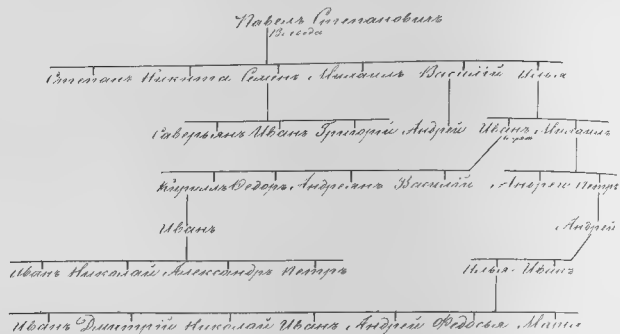 Павелъ Степановичъ
Степанъ Никита Семенъ Михаилъ Василій Илья
Саверьянъ Иванъ Григорій Андрей Иванъ Михаилъ
Кириллъ Ѳедоръ Андреянъ Василій Андрей Петръ
Иванъ Андрей
Иванъ Николай Александръ Петръ Илья Иванъ
Иванъ Дмитрій Николай Иванъ Андрей Федосья